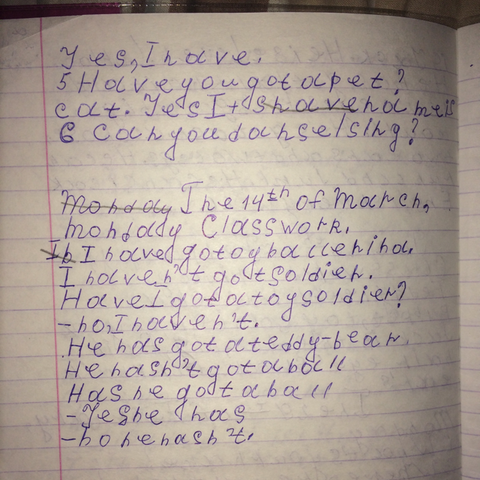 Yes, I have.
5 Have you got a pet?
cat. Yes I + Its name is
6 Can you danse/sing?
Monday The 14th of March,
Monday Classwork.
I have got toy ballerina.
I haven't got soldier.
Have I got a toy soldier?
- no, I haven't.
He has got a teddy-bear.
He hasn't got a ball
Has he got a ball
- Yes he has
- no he hasn't.